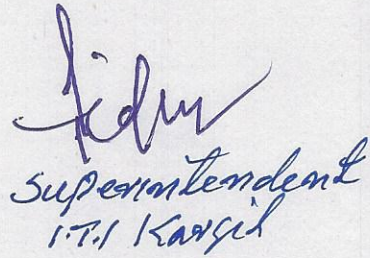 Superintendent
I.T.I Kargil